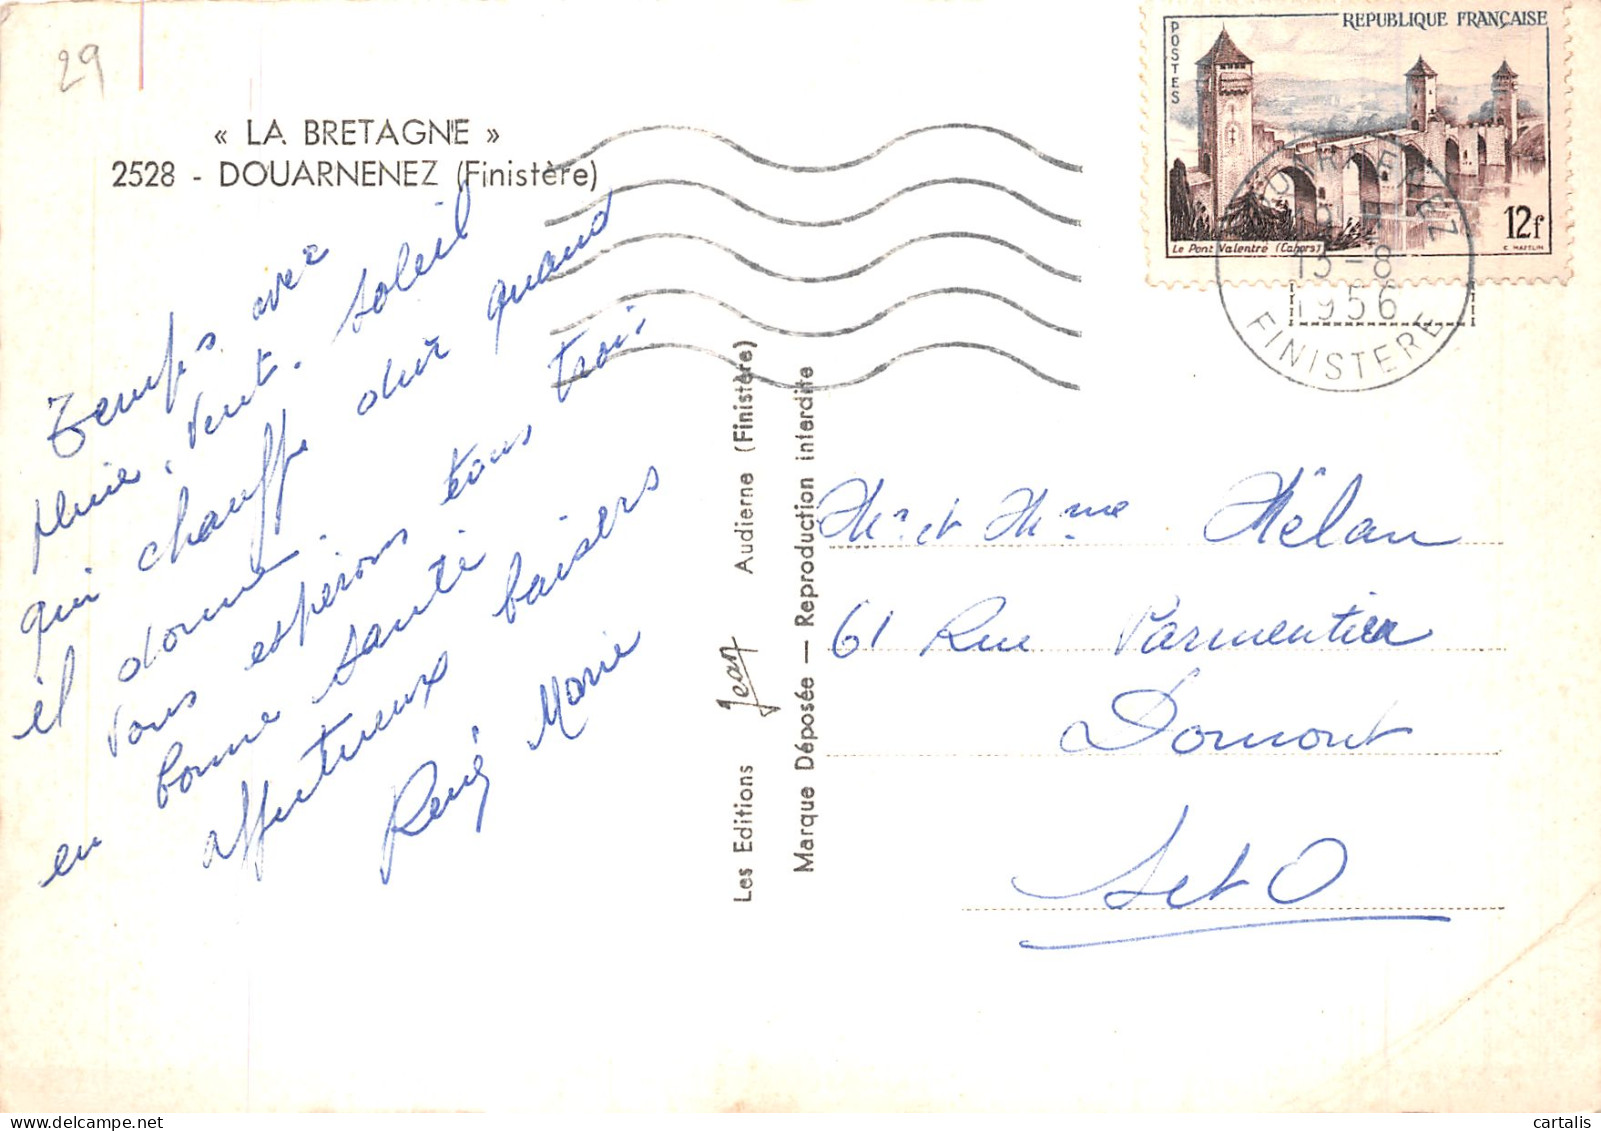 29
« LA BRETAGNE »
2528 - DOUARNENEZ (Finistère)
Temps avec
pluie, vent, soleil
qui chauffe dur quand
il donne.
Vous espérons tous trois
en bonne santé
affectueux baisers
René Marie
Les Editions Jean Audierne (Finistère)
Marque Déposée — Reproduction interdite
POSTES
REPUBLIQUE FRANÇAISE
12f
Le Pont Valentré (Cahors)
C. MAZELIN
DOUARNENEZ
13-8
1956
FINISTERE
Mr et Mme Hélan
61 Rue Parmentier
Domont
S et O
cartalis
www.delcampe.net